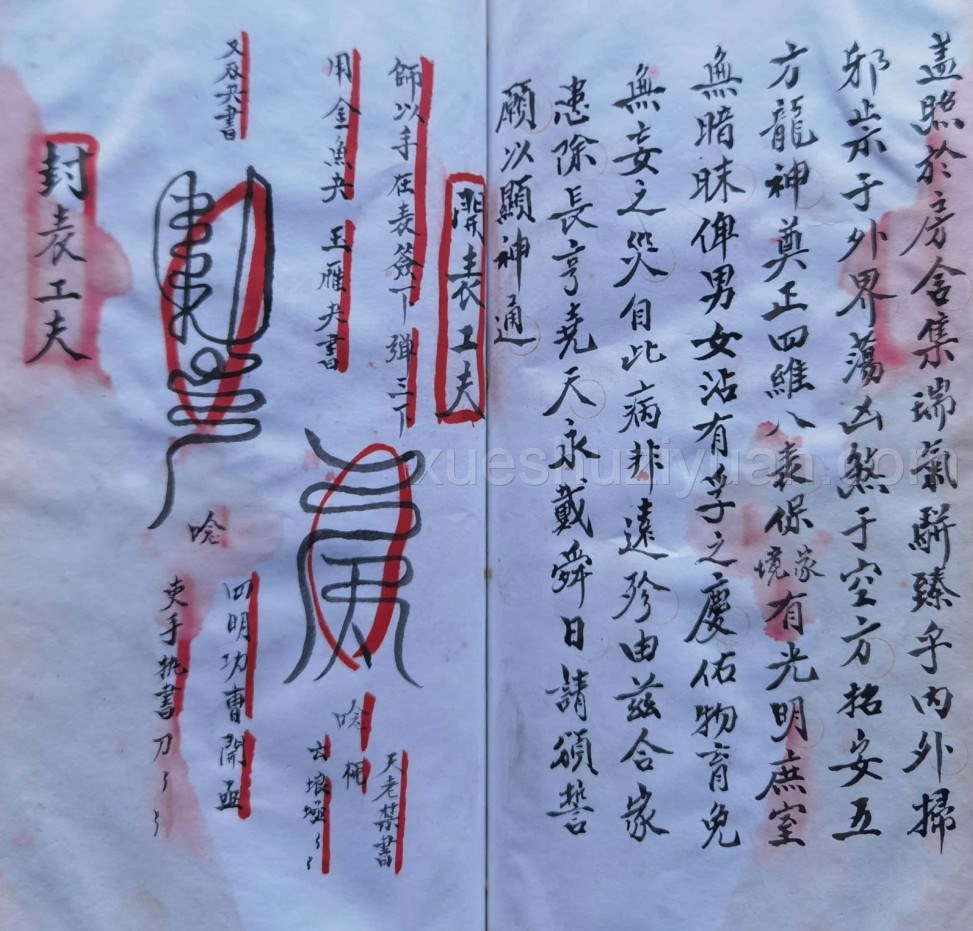 盖照於房舍集瑞氣駢臻乎内外掃
邪祟于外界蕩凶煞于空方招安五
方龍神奠正四維八表保家境有光明庶室
無暗昧俾男女沾有孚之慶佑物育免
無妄之災自此病非遠殄由茲合家
患除長亨堯天永戴舜日請頒誓
願以顯神通
開表工夫
師以手在表簽下弹三下
用金魚夬 玉雁夬書
唵
天老禁書
又 夬書
唵
四明功曹開函
吏手批書刀
封表工夫
xueshuziyuan.com